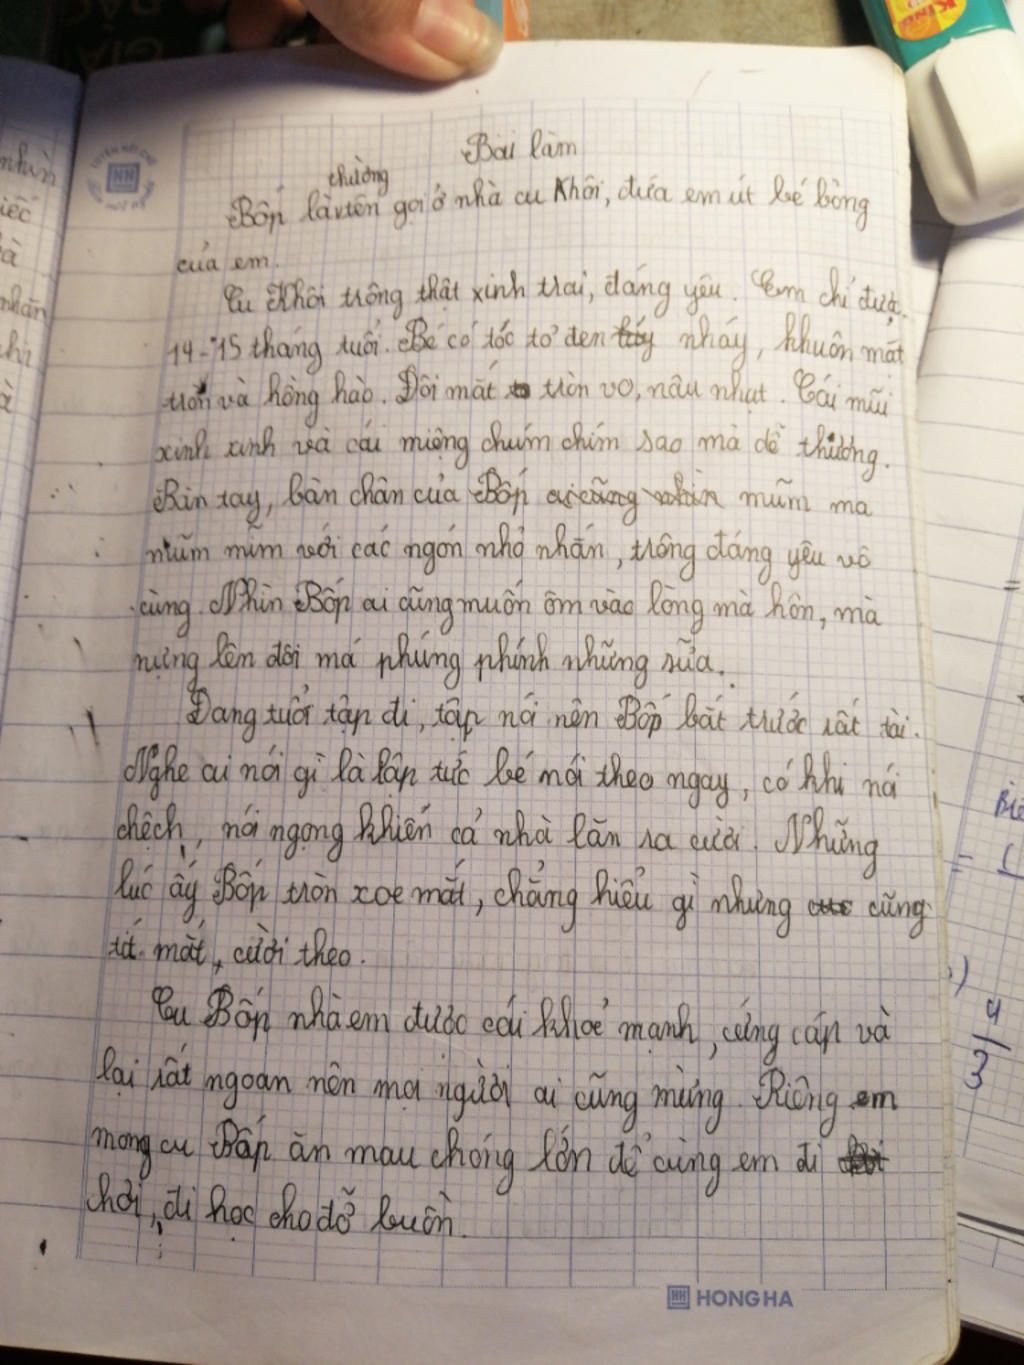 Bài làm
thường
Bốp là tên gọi ở nhà cu Khôi, đứa em út bé bỏng
của em.
Cu Khôi trông thật xinh trai, đáng yêu. Em chỉ được
14-15 tháng tuổi. Bé có tóc tơ đen nháy, khuôn mặt
tròn và hồng hào. Đôi mắt tròn vo, nâu nhạt. Cái mũi
xinh xinh và cái miệng chúm chím sao mà dễ thương.
Bàn tay, bàn chân của Bốp mũm ma
mũm mĩm với các ngón nhỏ nhắn, trông đáng yêu vô
cùng. Nhìn Bốp ai cũng muốn ôm vào lòng mà hôn, mà
nựng lên đôi má phúng phính những sữa.
Đang tuổi tập đi, tập nói nên Bốp bắt trước rất tài.
Nghe ai nói gì là lập tức bé nói theo ngay, có khi nói
chệch, nói ngọng khiến cả nhà lăn ra cười. Những
lúc ấy Bốp tròn xoe mắt, chẳng hiểu gì nhưng cũng
tít mắt, cười theo.
Cu Bốp nhà em được cái khoẻ mạnh, cứng cáp và
lại rất ngoan nên mọi người ai cũng mừng. Riêng em
mong cu Bốp ăn mau chóng lớn để cùng em đi
chơi, đi học cho đỡ buồn.
HONG HA
KING
nhìn
iếc
à
nhăn
chi
Biể
= 1
4
3